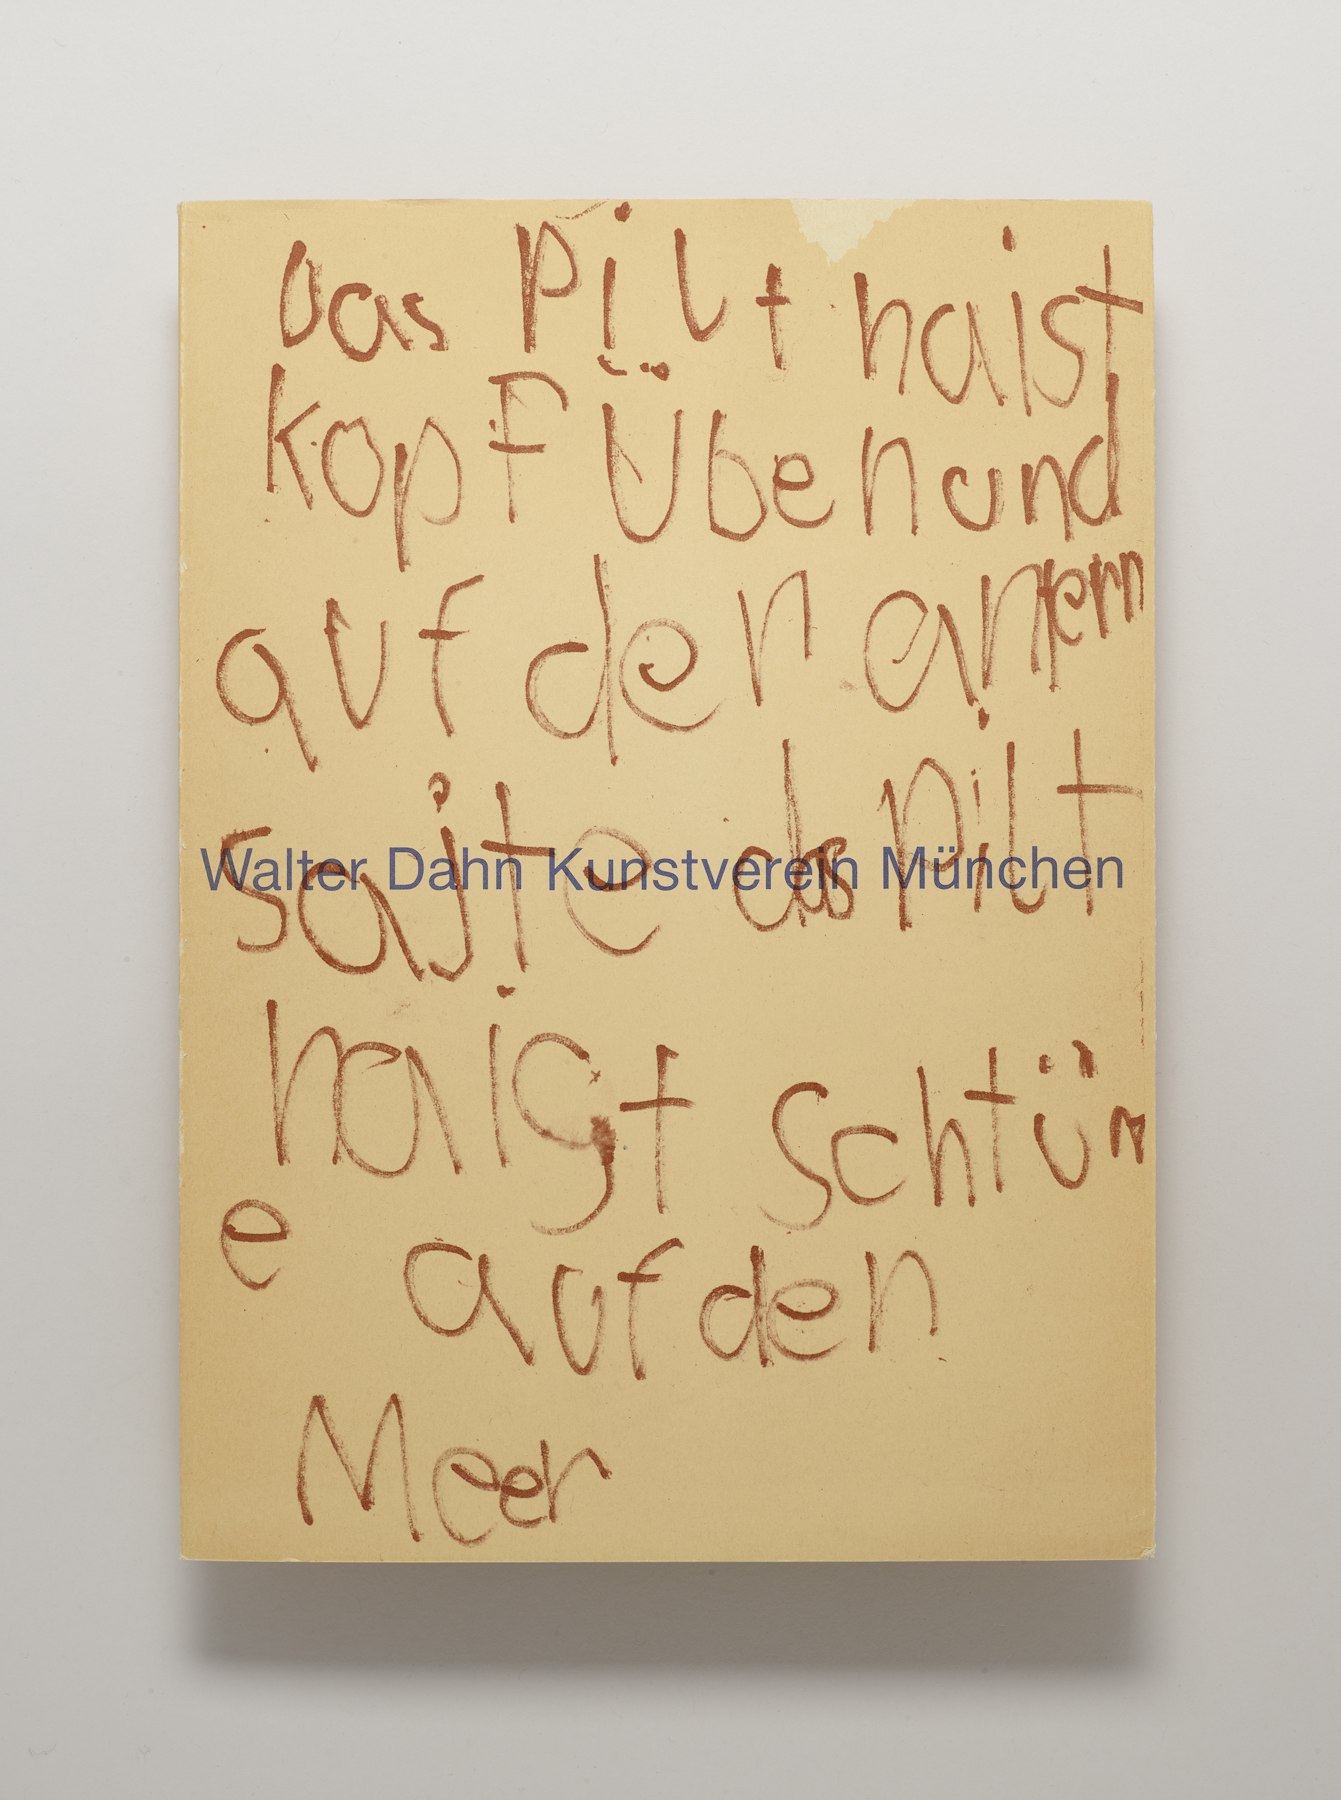 Das Pilt haist
kopf Üben und
auf der antern
sajte das pilt
Walter Dahn Kunstverein München
haigt schtür
e auf den
Meer